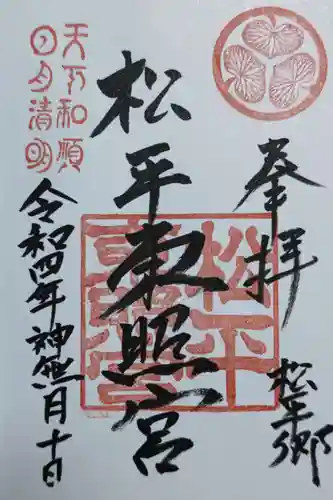 奉拝
松平郷
松平東照宮
松平東照宮
天下和順
日月清明
令和四年神無月十日